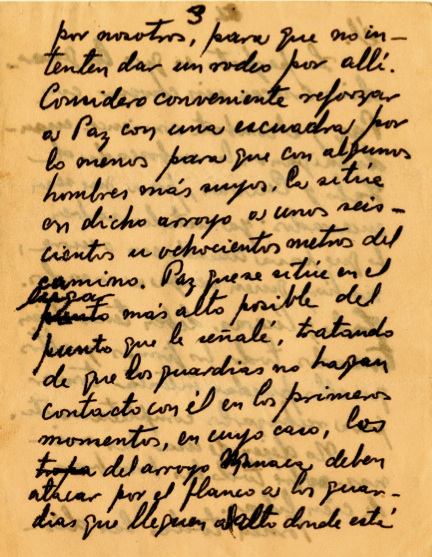 3
por nosotros, para que no in-
tenten dar un rodeo por allí.
Considero conveniente reforzar
a Paz con una escuadra por
lo menos para que con algunos
hombres más suyos, la sitúe
en dicho arroyo a unos seis-
cientos u ochocientos metros del
camino. Paz que se sitúe en el
lugar
punto más alto posible del
punto que le señalé, tratando
de que los guardias no hagan
contacto con él en los primeros
momentos, en cuyo caso, los
tropa del arroyo deben
atacar por el flanco a los guar-
dias que lleguen al alto donde está